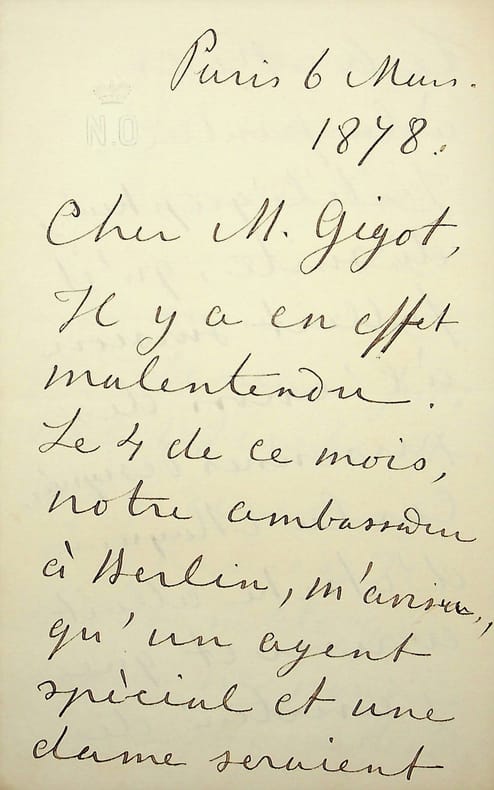 Paris 6 Mars.
1878.
N.O
Cher M. Gigot,
Il y a en effet
malentendu.
Le 4 de ce mois,
notre ambassadeur
à Berlin, m'avisa,
qu'un agent
spècial et une
dame seraient